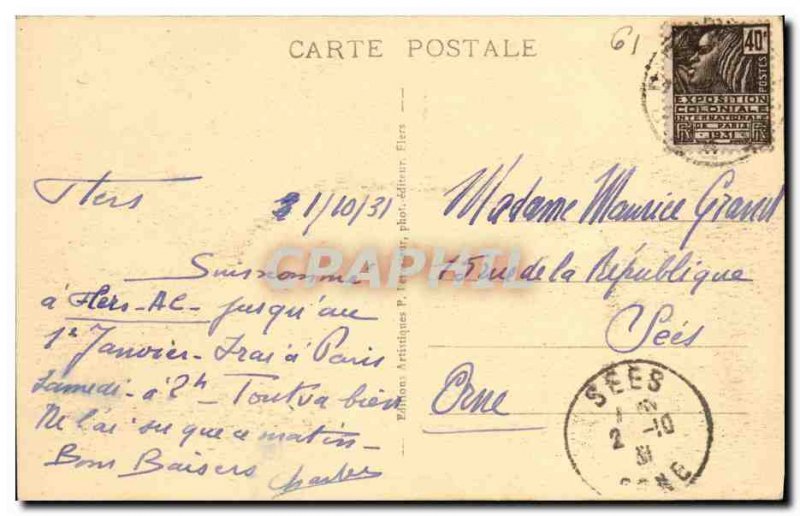 CARTE POSTALE
61
40c
POSTES
EXPOSITION
COLONIALE
INTERNATIONALE
DE PARIS
1931
Flers
1/10/31
Suis nommé
à Flers-AC- jusqu'au
1er Janvier- Irai à Paris
Samedi- à 2h- Tout va bien
Ne l'ai su que ce matin-
Bons Baisers
Charles
Editions Artistiques P. phot. éditeur, Flers
Madame Maurice Grand
75 rue de la République
Séés
Orne
SÉES
2 -10
31
ORNE
CRAPHIL